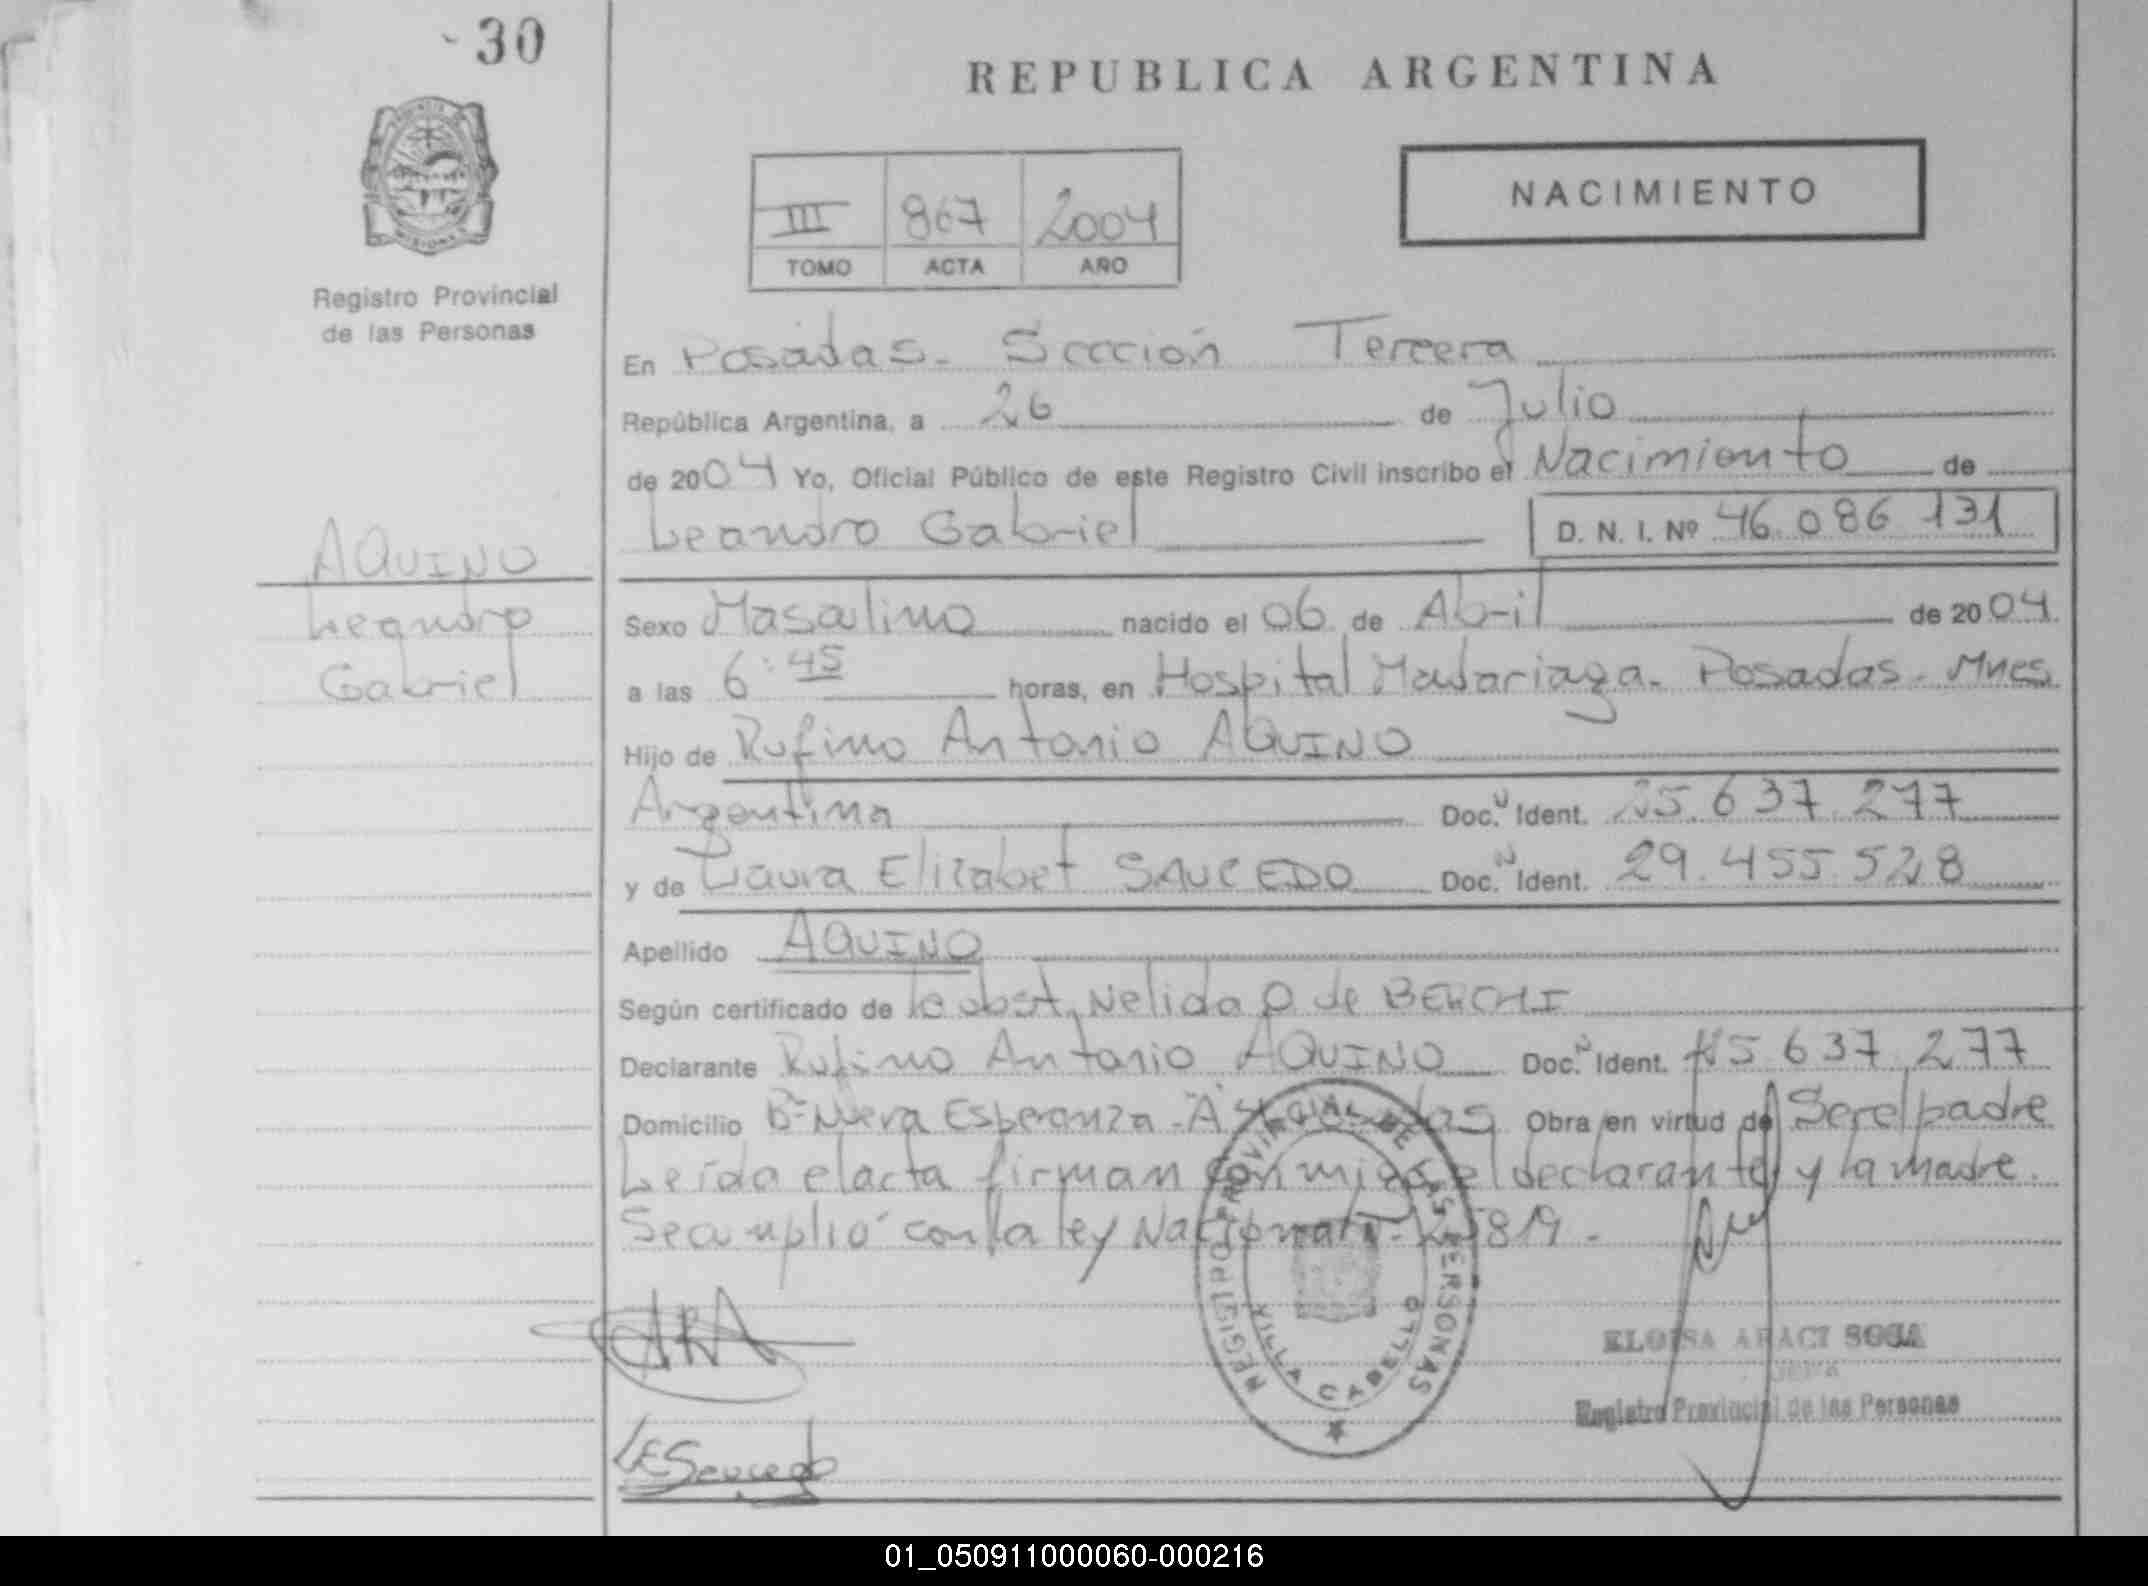 30
REPUBLICA ARGENTINA
NACIMIENTO
III 867 2004
TOMO ACTA AÑO
Registro Provincial
de las Personas
En Posadas - Sección Tercera
República Argentina, a 26 de Julio
de 2004 Yo, Oficial Público de este Registro Civil inscribo el Nacimiento de
Leandro Gabriel D. N. I. Nº 46.086.131
AQUINO
Leandro
Gabriel
Sexo Masculino nacido el 06 de Abril de 2004.
a las 6:45 horas, en Hospital Madariaga - Posadas - Mnes
Hijo de Rufino Antonio AQUINO
Argentina Doc. Ident. 25.637.277
y de Laura Elizabet SAUCEDO Doc. Ident. 29.455.528
Apellido AQUINO
Según certificado de obst. Nelida de
Declarante Rufino Antonio AQUINO Doc. Ident. 25.637.277
Domicilio Bº Nueva Esperanza - "A" 4 Posadas Obra en virtud de Ser el padre
Leída el acta firman conmigo el declarante y la madre.
Se cumplió con la ley Nacional 25819 -
REGISTRO PROVINCIAL DE LAS PERSONAS
VILLA CABELLO
ELOISA ARACI SOSA
JEFA
Registro Provincial de las Personas
LESaucedo
01_050911000060-000216